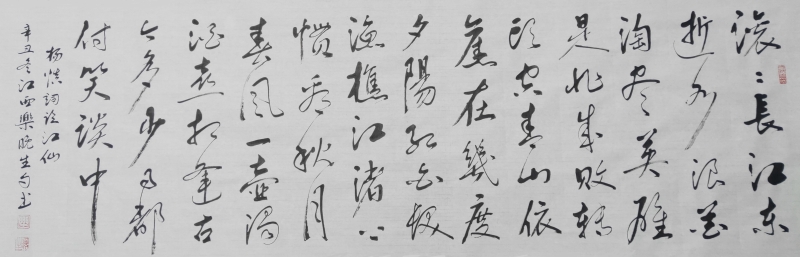 滚〻長江东
逝水浪花
淘尽英雄
是非成败转
头空青山依
舊在幾度
夕陽红白发
渔樵江渚上
惯看秋月
春风一壶濁
酒喜相逢古
今多少事都
付笑谈中
杨慎詞临江仙
辛丑冬江西樂晚生书